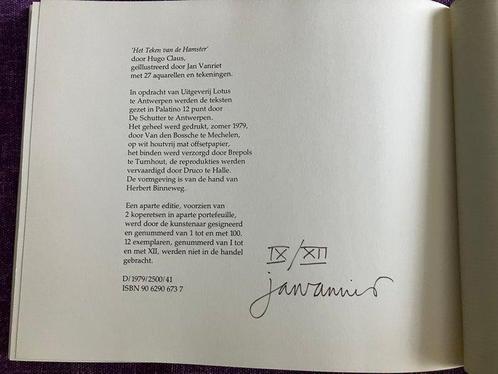 'Het Teken van de Hamster'
door Hugo Claus,
geïllustreerd door Jan Vanriet
met 27 aquarellen en tekeningen.
In opdracht van Uitgeverij Lotus
te Antwerpen werden de teksten
gezet in Palatino 12 punt door
De Schutter te Antwerpen.
Het geheel werd gedrukt, zomer 1979,
door Van den Bossche te Mechelen,
op wit houtvrij mat offsetpapier,
het binden werd verzorgd door Brepols
te Turnhout, de reprodukties werden
vervaardigd door Druco te Halle.
De vormgeving is van de hand van
Herbert Binneweg.
Een aparte editie, voorzien van
2 koperetsen in aparte portefeuille,
werd door de kunstenaar gesigneerd
en genummerd van 1 tot en met 100.
12 exemplaren, genummerd van I tot
en met XII, werden niet in de handel
gebracht.
IX/XII
janvanriet
D/1979/2500/41
ISBN 90 6290 673 7